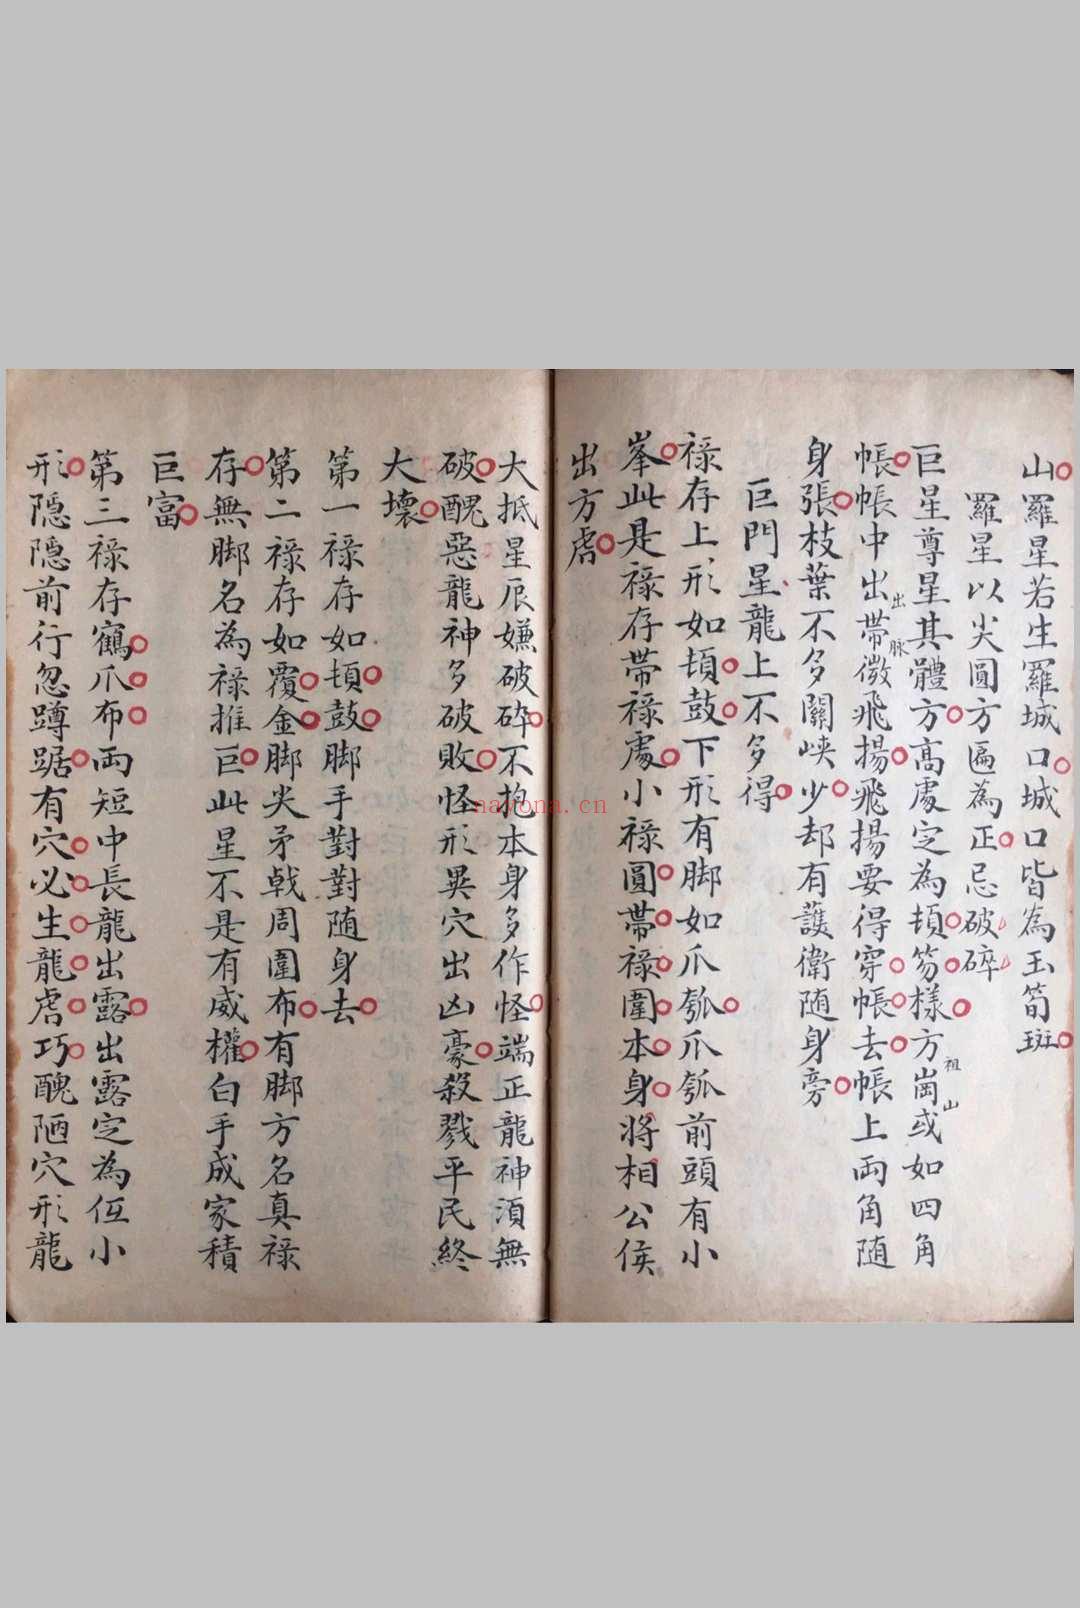 山羅星若生羅城口城口皆為玉筍班
羅星以尖圓方匾為正忌破碎
巨星尊星其體方高處定為頓笏樣方崗或如四角
祖山
帳帳中出帶微飛揚飛揚要得穿帳去帳上両角随
出脉
身張枝葉不多關峽少却有護衛随身旁
巨門星龍上不多得
禄存上形如頓鼓下形有脚如爪瓠爪瓠前頭有小
峯此是禄存帶禄處小禄圓帶禄圍本身將相公侯
出方虐
大抵星辰嫌破碎不抱本身多作怪端正龍神須無
破醜惡龍神多破敗怪形異穴出凶豪殺戮平民終
大壞
第一禄存如頓鼓脚手對對随身去
第二禄存如覆金脚尖矛戟周圍布有脚方名真禄
存無脚名為禄推巨此星不是有威權白手成家積
巨富
第三禄存鶴爪布両短中長龍出露出露定為伍小
形隠隠前行忽蹲踞有穴必生龍虐巧醜陋穴形龍
nayona.cn